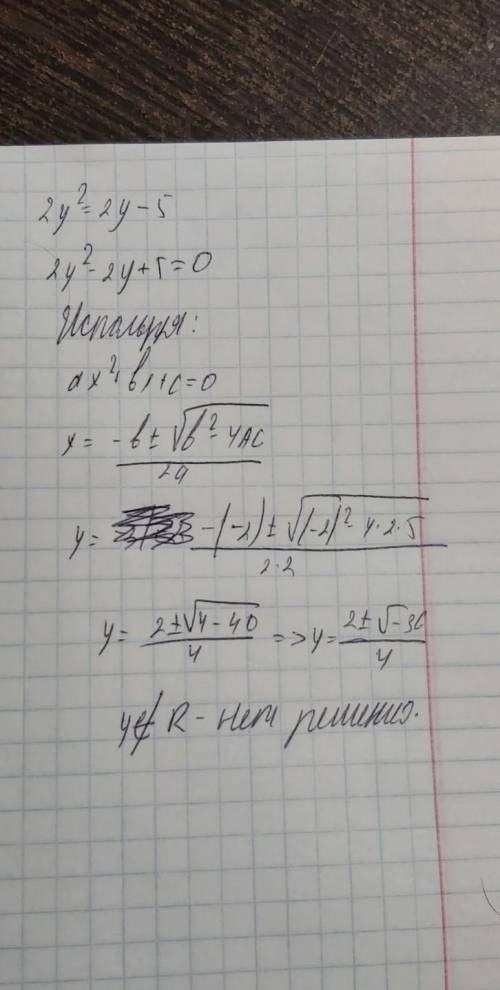 2y² = 2y - 5
2y² - 2y + 5 = 0
Используя:
ax² + bx + c = 0
x = (-b ± √(b² - 4AC)) / 2a
y = (-(-2) ± √((-2)² - 4·2·5)) / 2·2
y = (2 ± √(4 - 40)) / 4 => y = (2 ± √(-36)) / 4
y ∉ R - нет решений.